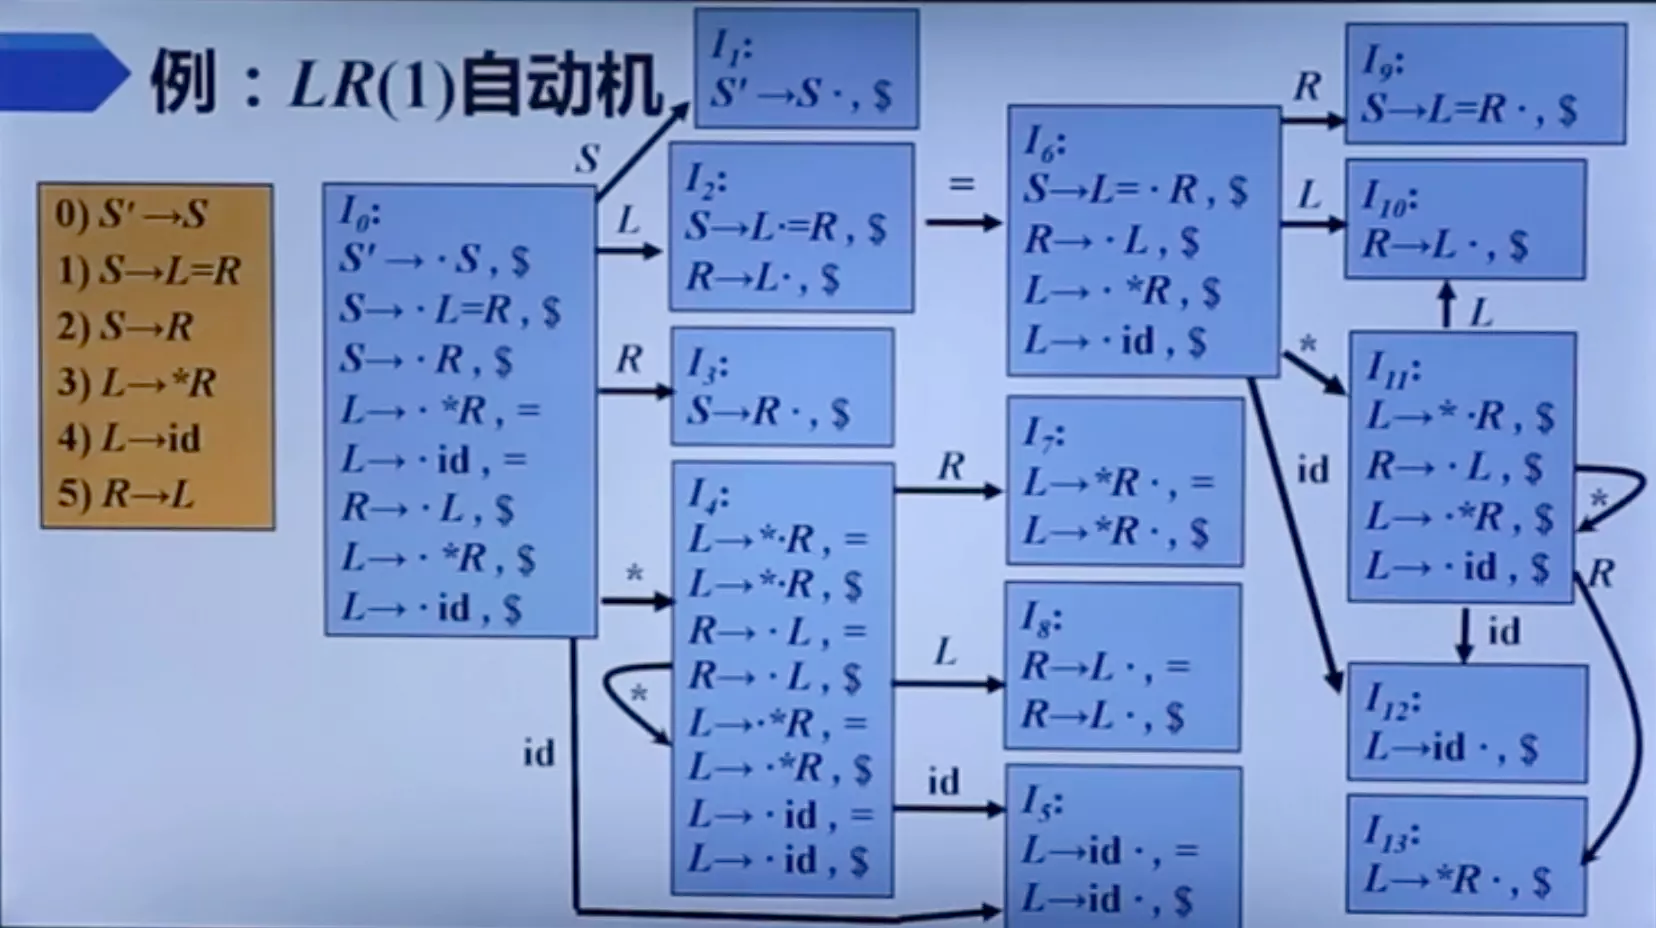 例：LR(1)自动机
0) S'→S
1) S→L=R
2) S→R
3) L→*R
4) L→id
5) R→L
I0:
S'→·S, $
S→·L=R, $
S→·R, $
L→·*R, =
L→·id, =
R→·L, $
L→·*R, $
L→·id, $
S
L
R
*
id
I1:
S'→S·, $
I2:
S→L·=R, $
R→L·, $
I3:
S→R·, $
I4:
L→*·R, =
L→*·R, $
R→·L, =
R→·L, $
L→·*R, =
L→·*R, $
L→·id, =
L→·id, $
*
=
R
L
id
I6:
S→L=·R, $
R→·L, $
L→·*R, $
L→·id, $
I7:
L→*R·, =
L→*R·, $
I8:
R→L·, =
R→L·, $
I5:
L→id·, =
L→id·, $
R
L
*
id
I9:
S→L=R·, $
I10:
R→L·, $
L
I11:
L→*·R, $
R→·L, $
L→·*R, $
L→·id, $
*
R
id
I12:
L→id·, $
I13:
L→*R·, $